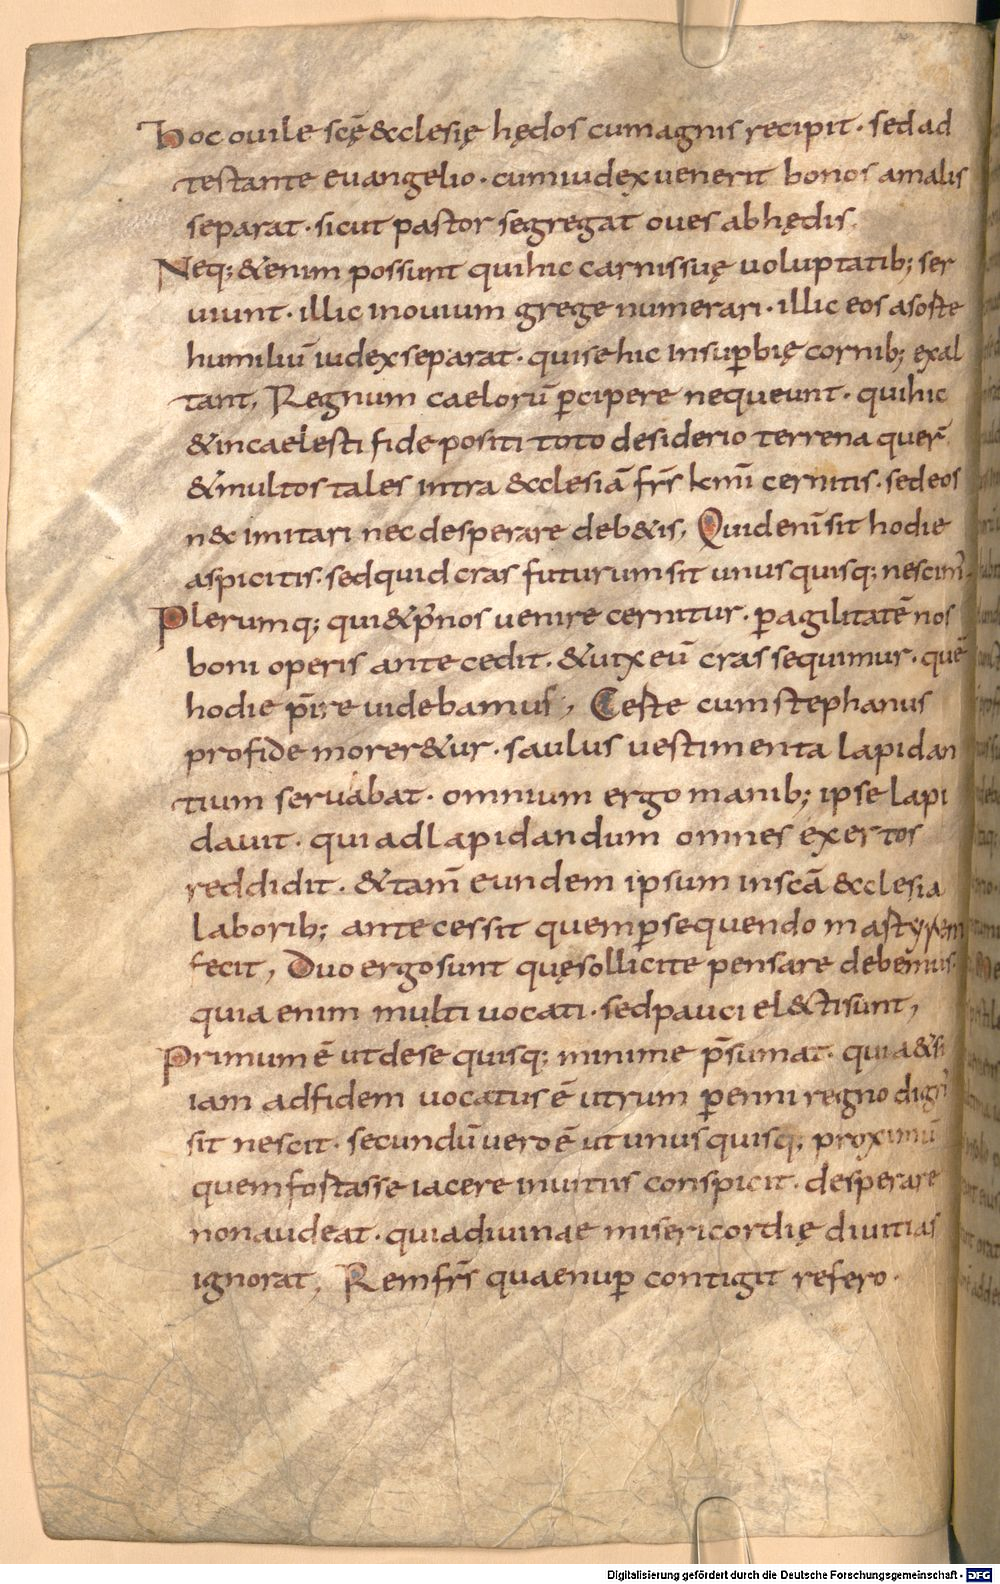 Hoc ouile scę̄ &cclesię hędos cum agnis recipit · sed ad
testante euangelio · cum iudex uenerit bonos a malis
separat · sicut pastor segregat oues ab hędis.
Neq; &enim possunt qui hic carnis suę uoluptatib; ser
uiunt · illic in ouium grege numerari · illic eos a sorte
humiliū iudex separat · qui se hic in sup̄bię cornib; exal
tant, Regnum caelorū p̄cipere nequeunt · qui hic
& in caelesti fide positi toto desiderio terrena quer̄
& multos tales intra &cclesiā frs̄ km̄i cernitis · sed eos
n&c imitari nec desperare deb&is, Quid eni̅ sit hodie
aspicitis · sed quid cras futurum sit unusquisq; nescim̄
Plerumq; qui & p̄ nos uenire cernitur · p̄ agilitatē nos
boni operis antecedit · & uix eū cras sequimur · quē
hodie p̄ire uidebamus, Certe cum stephanus
pro fide morer&ur · saulus uestimenta lapidan
tium seruabat · omnium ergo manib; ipse lapi
dauit · qui ad lapidandum omnes exertos
reddidit · & tam̄ eundem ipsum in scā &cclesia
laborib; antecessit quem p̄sequendo martyrem
fecit, Duo ergo sunt quę sollicite pensare debemus ·
quia enim multi uocati · sed pauci el&cti sunt,
Primum ē ut de se quisq; minime p̄sumat · quia &si
iam ad fidem uocatus ē utrum p̄enni regno dign̄
sit nescit · secundū uero ē ut unusquisq; proximū
quem fortasse iacere in uitiis conspicit · desperare
non audeat · quia diuinae misericordię diuitias
ignorat, Rem frs̄ quae nup̄ contigit refero ·
Digitalisierung gefördert durch die Deutsche Forschungsgemeinschaft - DFG